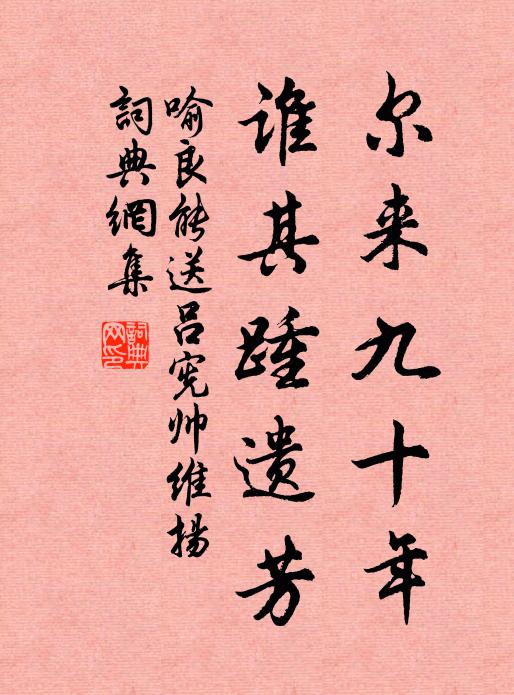 尔来九十年
谁其踵遗芳
喻良能送吕宪帅维扬
詞典網集
詞典网印